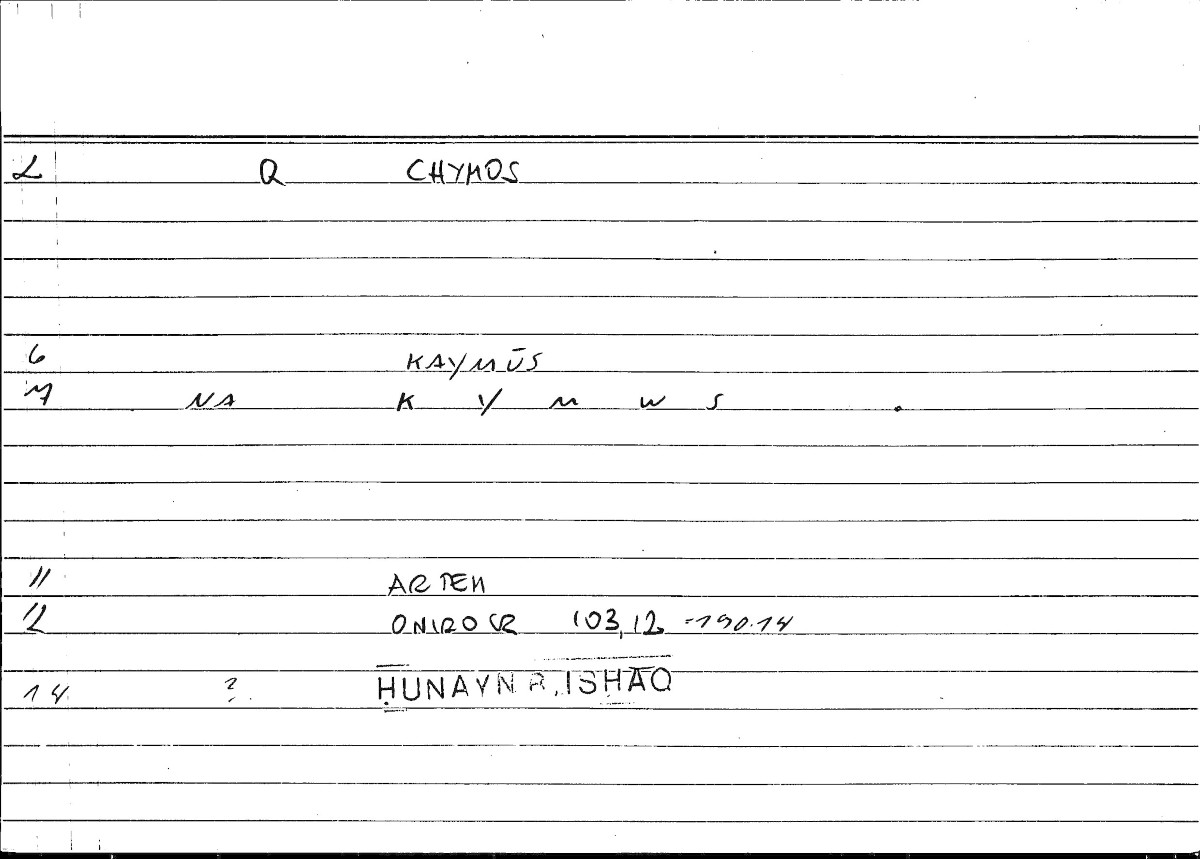 2 Q CHYMOS
6 KAYMŪS
7 NA K Y M W S .
11 ARTEM
12 ONIROCR 103,12 =190.14
14 ? ḤUNAYN B. ISḤĀQ